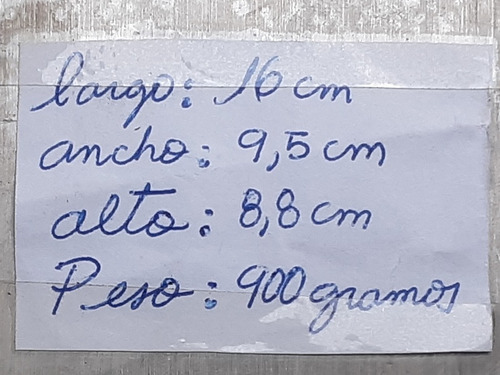 largo: 16 cm
ancho: 9,5 cm
alto: 8,8 cm
Peso: 900 gramos